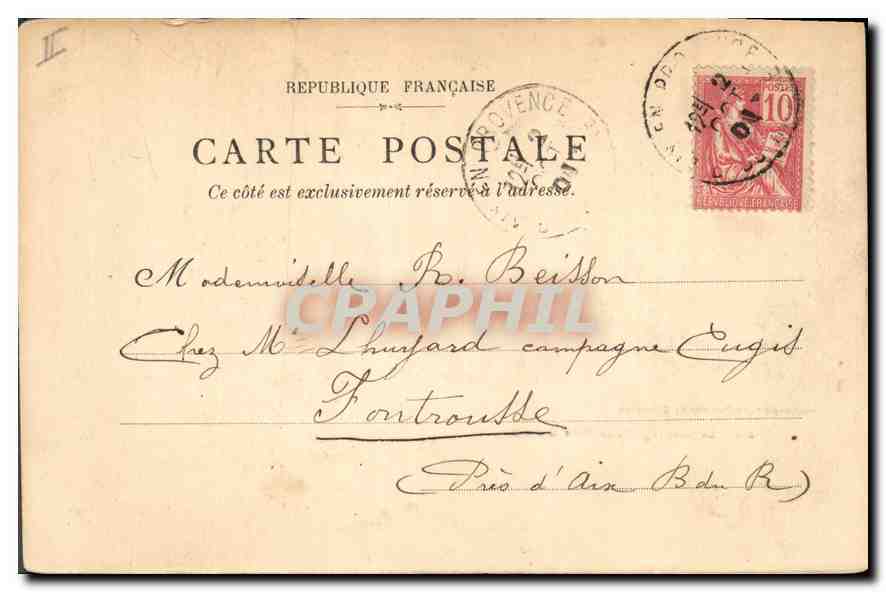 II
REPUBLIQUE FRANÇAISE
CARTE POSTALE
Ce côté est exclusivement réservé à l'adresse.
EN PROVENCE
POSTES
10
REPUBLIQUE FRANÇAISE
Mademoiselle R. Beisson
CPAPHIL
Chez Mr Lhuyard campagne Eugis
Fontrousse
(Près d'Aix B du R)